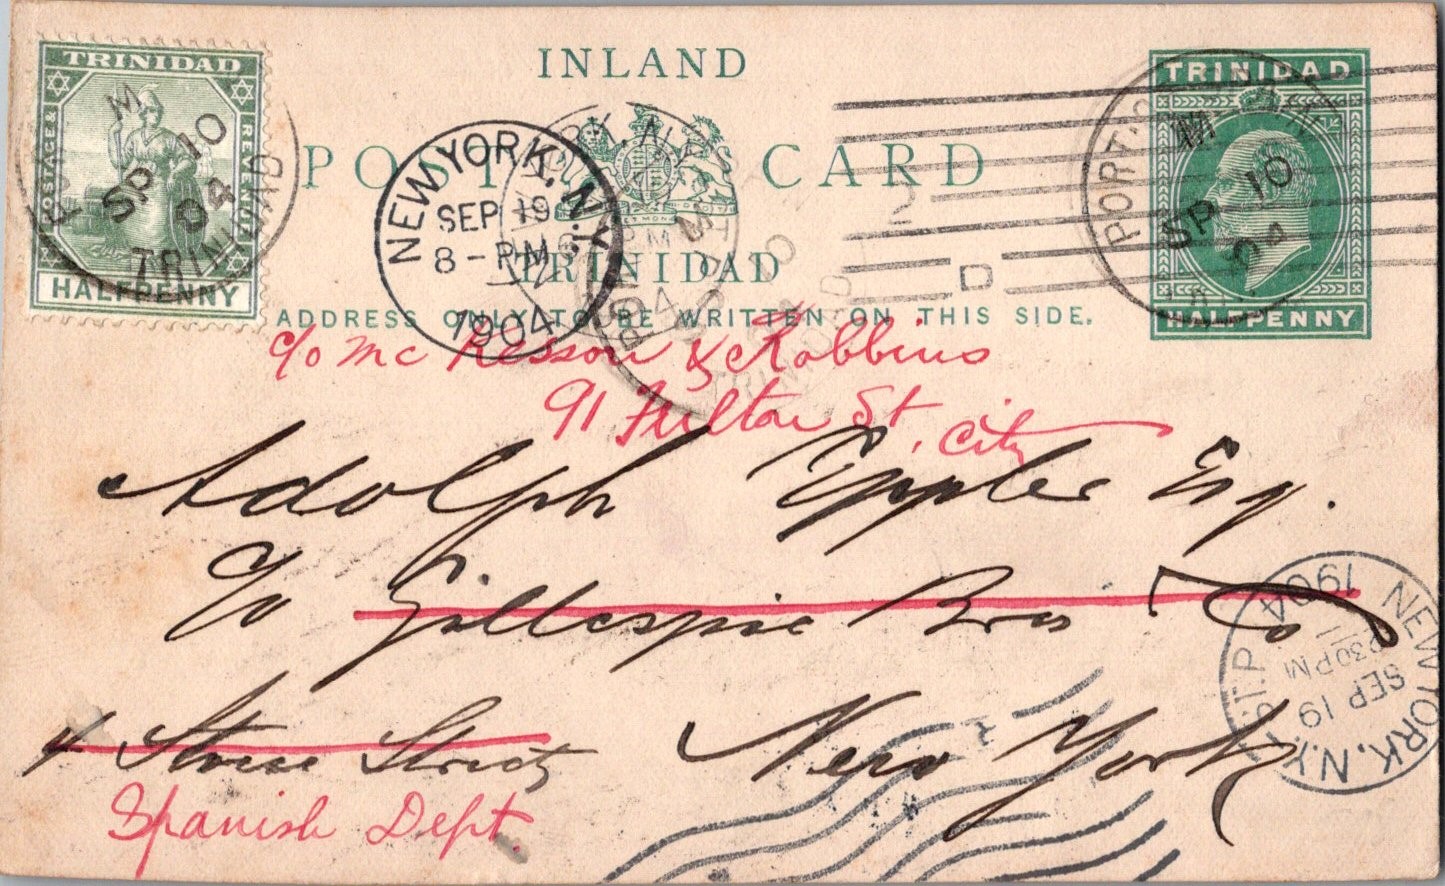 TRINIDAD
POSTAGE &
REVENUE
HALFPENNY
TRINIDAD
SP 10
04
INLAND
POST CARD
TRINIDAD
ADDRESS ONLY TO BE WRITTEN ON THIS SIDE.
NEW YORK, N.Y.
SEP 19
8-PM
1904
2
D
TRINIDAD
HALFPENNY
PORT
M
SP 10
04
c/o Mc Kesson & Robbins
91 Fulton St, City
Adolph Eppler Esq.
c/o Gillespie Bros & Co
4 Stone Street
New York
Spanish Dept.
NEW YORK, N.Y.
SEP 19
230PM
1904